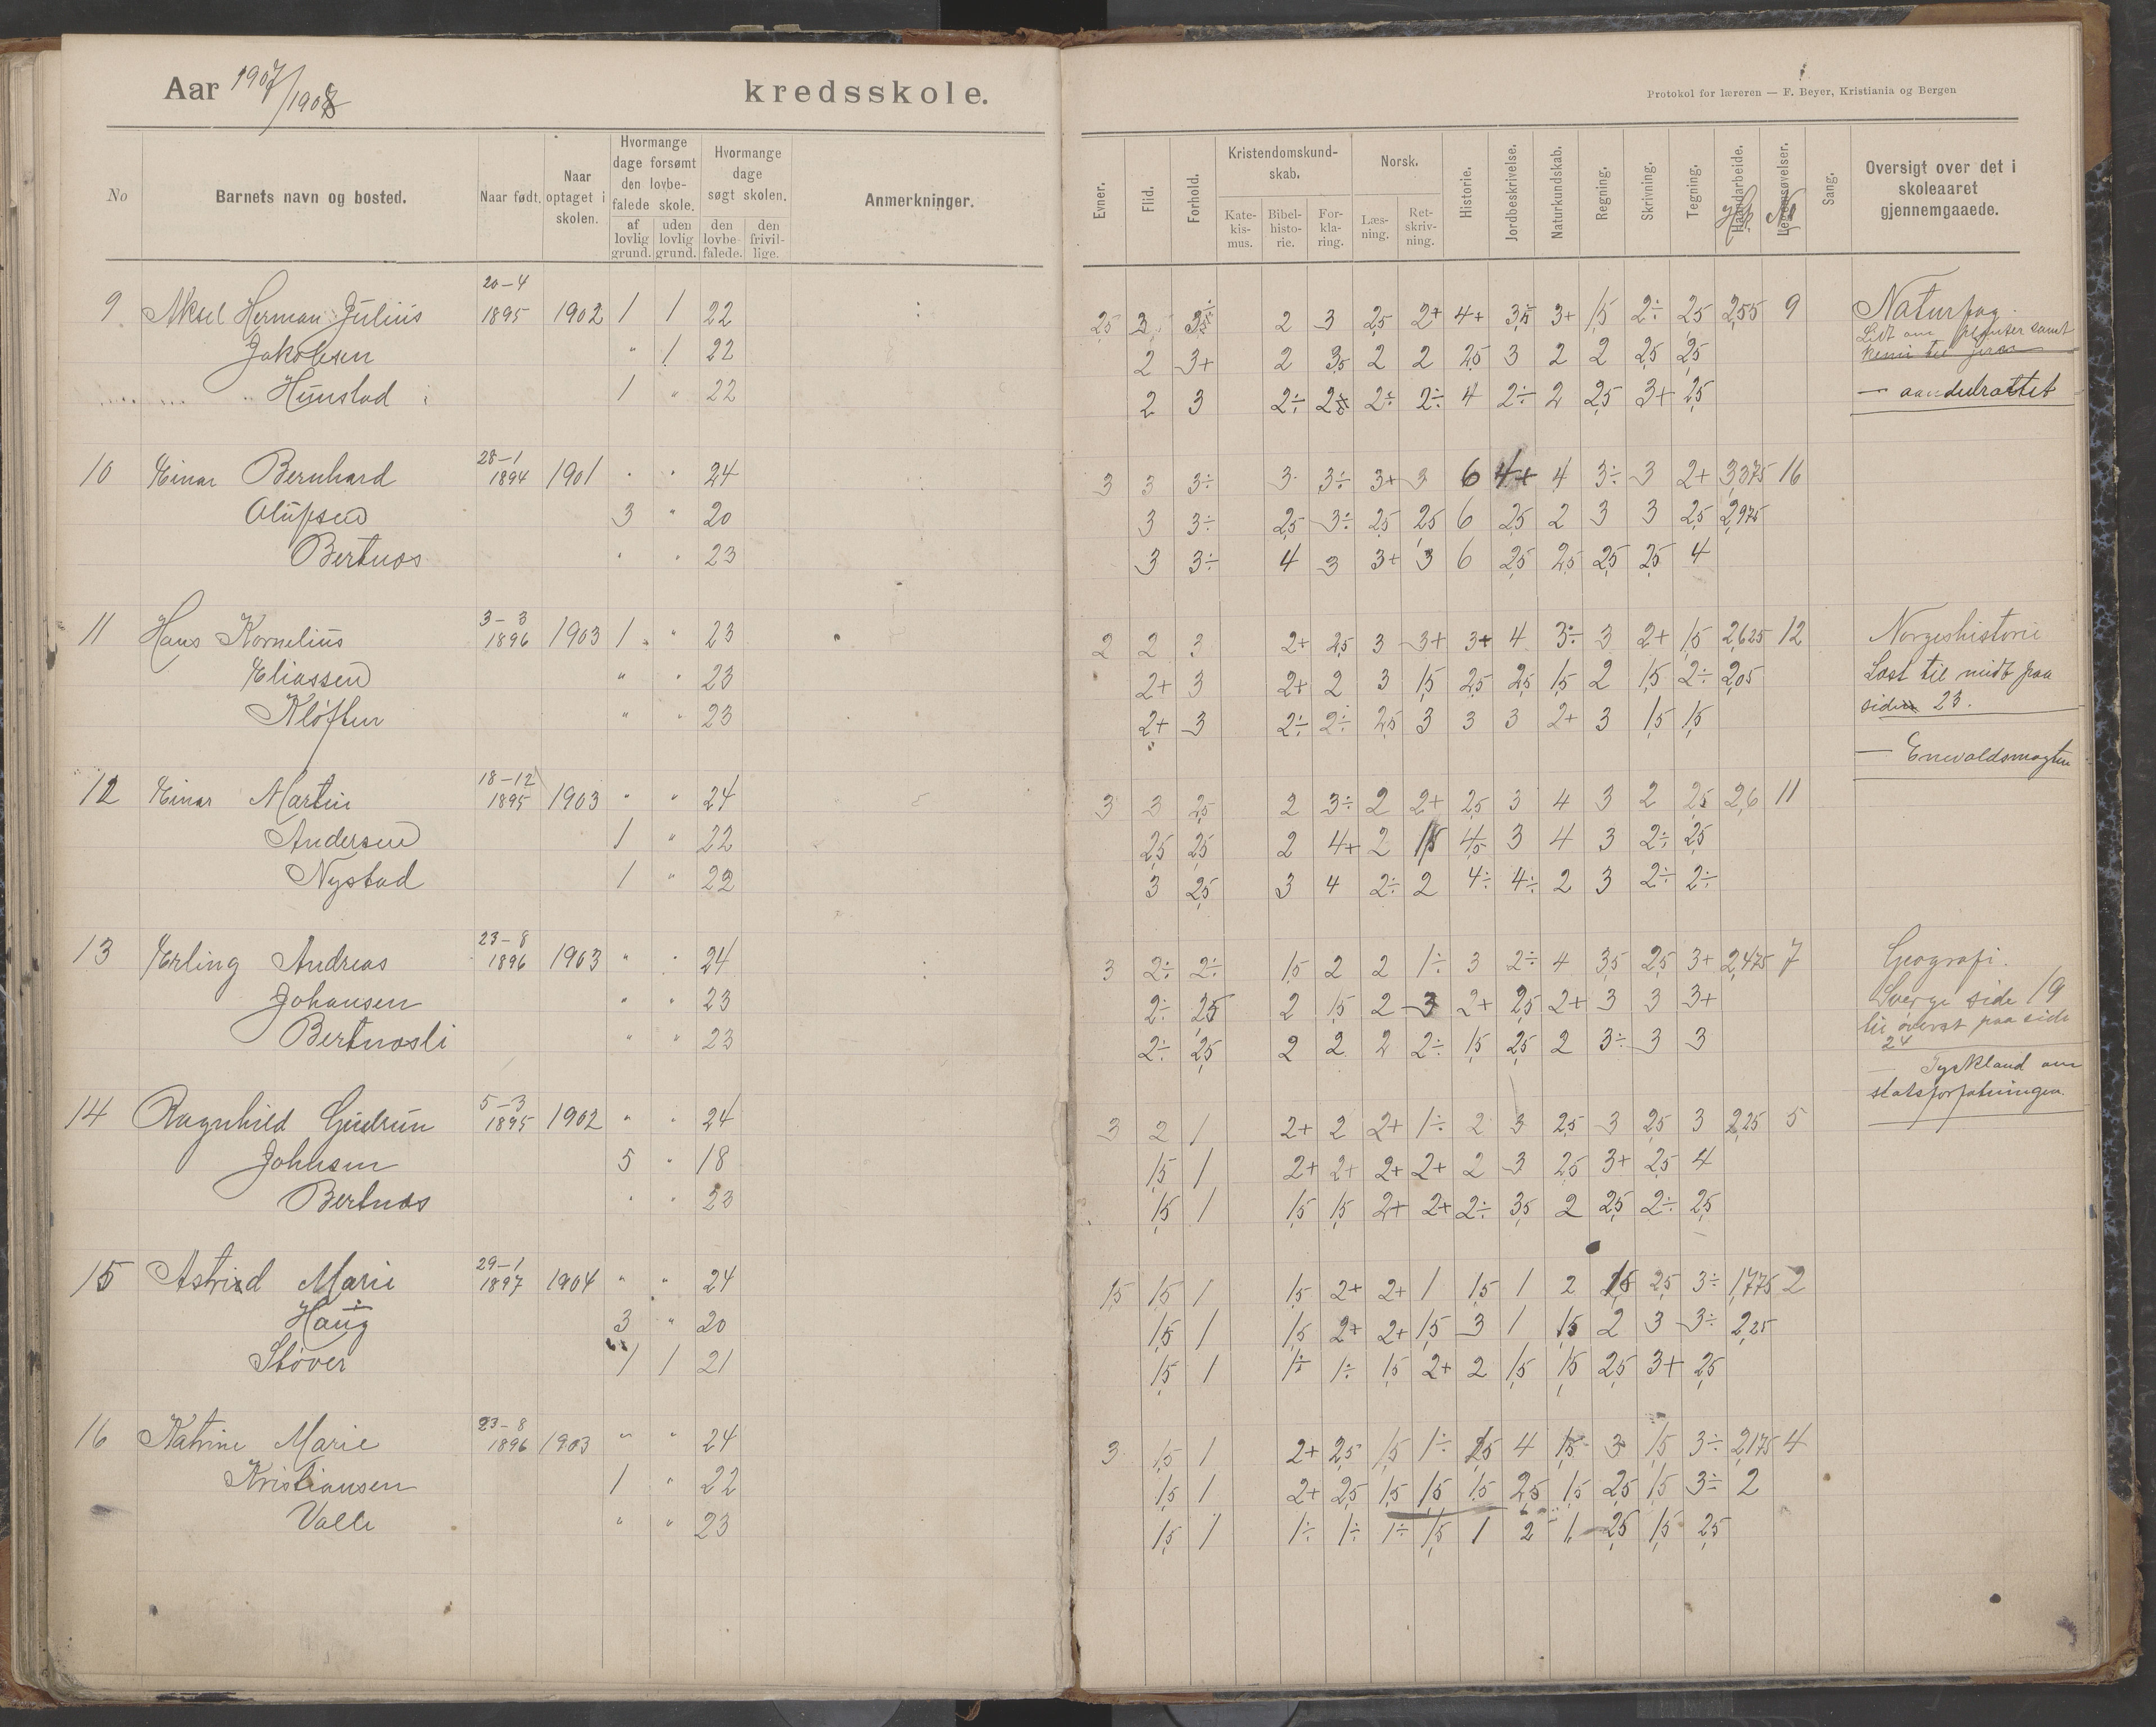 Aar 1907/1908
kredsskole.
Protokol for læreren — F. Beyer, Kristiania og Bergen
No
Barnets navn og bosted.
Naar født.
Naar optaget i skolen.
Hvormange dage forsømt den lovbefalede skole.
af lovlig grund.
uden lovlig grund.
Hvormange dage søgt skolen.
den lovbefalede.
den frivillige.
Anmerkninger.
Evner.
Flid.
Forhold.
Kristendomskundskab.
Katekismus.
Bibelhistorie.
Forklaring.
Norsk.
Læsning.
Retskrivning.
Historie.
Jordbeskrivelse.
Naturkundskab.
Regning.
Skrivning.
Tegning.
Haandarbeide.
Legemsøvelser.
Sang.
Oversigt over det i skoleaaret gjennemgaaede.
20-4
9 Aksel Herman Julius 1895 1902 1 1 22 2,5 3 2 3 2,5 2+ 4+ 3,5 3+ 1,5 2÷ 2,5 2,55 9 Naturfag.
Jakobsen " 1 22 2 3+ 2 3,5 2 2 2,5 3 2 2 2,5 2,5
Hunstad 1 " 22 2 3 2÷ 2÷ 2÷ 4 2÷ 2 2,5 3+ 2,5 — aandedrættet
28-1
10 Einar Bernhard 1894 1901 " " 24 3 3 3÷ 3 3÷ 3+ 3 6 4+ 4 3÷ 3 2+ 3,375 16
Olufsen 3 " 20 3 3÷ 2,5 3÷ 2,5 2,5 6 2,5 2 3 3 2,5 2,975
Bertnæs " " 23 3 3÷ 4 3 3+ 3 6 2,5 2,5 2,5 2,5 4
3-3
11 Hans Kornelius 1896 1903 1 " 23 2 2 3 2+ 2,5 3 3+ 3+ 4 3÷ 3 2+ 1,5 2,625 12 Norgeshistorie
Eliassen " " 23 2+ 3 2+ 2 3 1,5 2,5 2,5 1,5 2 1,5 2÷ 2,05 Læst til midt paa
Kløften " " 23 2+ 3 2÷ 2÷ 2,5 3 3 3 2+ 3 1,5 1,5 side 23.
— Enevoldsmagten
18-12
12 Einar Martin 1895 1903 " " 24 3 3 2,5 2 3÷ 2 2+ 2,5 3 4 3 2 2,5 2,6 11
Andersen 1 " 22 2,5 2,5 2 4+ 2 1,5 4,5 3 4 3 2÷ 2,5
Nystad 1 " 22 3 2,5 3 4 2÷ 2 4÷ 4÷ 2 3 2÷ 2÷
23-8
13 Erling Andreas 1896 1903 " " 24 3 2÷ 2÷ 1,5 2 2 1÷ 3 2÷ 4 3,5 2,5 3+ 2,475 7 Geografi.
Johansen " " 23 2÷ 2,5 2 1,5 2 3 2+ 2,5 2+ 3 3 3+ Sverge side 19
til øverst paa side
Bertnæsli " " 23 2÷ 2,5 2 2 2 2÷ 1,5 2,5 2 3÷ 3 3 24
— Tyskland om
statsforfatningen.
5-3
14 Ragnhild Gudrun 1895 1902 " " 24 3 2 1 2+ 2 2+ 1÷ 2 3 2,5 3 2,5 3 2,25 5
Johnsen 5 " 18 1,5 1 2+ 2+ 2+ 2+ 2 3 2,5 3+ 2,5 4
Bertnæs " " 23 1,5 1 1,5 1,5 2+ 2+ 2÷ 3,5 2 2,5 2÷ 2,5
29-1
15 Astrid Marie 1897 1904 " " 24 1,5 1,5 1 1,5 2+ 2+ 1 1,5 1 2 1,5 2,5 3÷ 1,775 2
Haug 3 " 20 1,5 1 1,5 2+ 2+ 1,5 3 1 1,5 2 3 3÷ 2,25
Støver 1 1 21 1,5 1 1÷ 1÷ 1,5 2+ 2 1,5 1,5 2,5 3+ 2,5
23-8
16 Katrine Marie 1896 1903 " " 24 3 1,5 1 2+ 2,5 1,5 1÷ 2,5 4 1,5 3 1,5 3÷ 2,175 4
Kristiansen 1 " 22 1,5 1 2+ 2,5 1,5 1,5 1,5 2,5 1,5 2,5 1,5 3÷ 2
Valle " " 23 1,5 1 1÷ 1÷ 1÷ 1,5 1 2 1 2,5 1,5 2,5